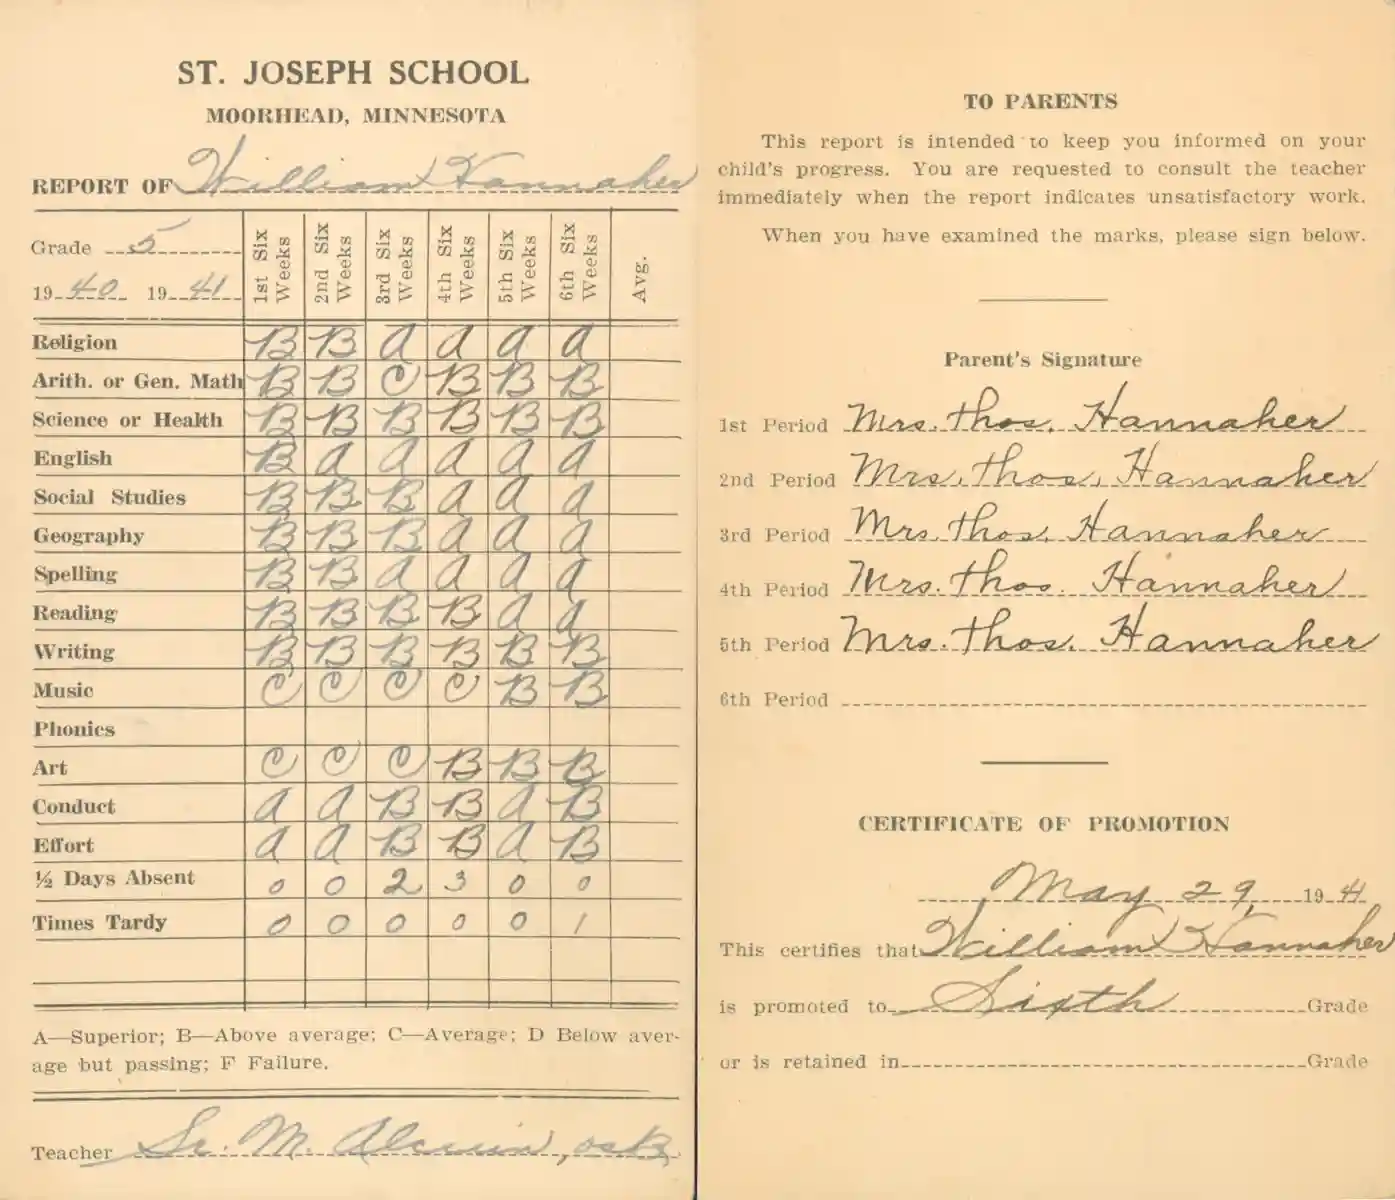 ST. JOSEPH SCHOOL
MOORHEAD, MINNESOTA
REPORT OF William Hannaher
Grade 5
1940 1941
1st Six Weeks 2nd Six Weeks 3rd Six Weeks 4th Six Weeks 5th Six Weeks 6th Six Weeks Avg.
Religion B B A A A A
Arith. or Gen. Math B B C B B B
Science or Health B B B B B B
English B A A A A A
Social Studies B B B A A A
Geography B B B A A A
Spelling B B A A A A
Reading B B B B A A
Writing B B B B B B
Music C C C C B B
Phonics
Art C C C B B B
Conduct A A B B A B
Effort A A B B A B
½ Days Absent 0 0 2 3 0 0
Times Tardy 0 0 0 0 0 1
A—Superior; B—Above average; C—Average; D Below aver-
age but passing; F Failure.
Teacher Sr. M. Alcuin, OSB
TO PARENTS
This report is intended to keep you informed on your
child's progress. You are requested to consult the teacher
immediately when the report indicates unsatisfactory work.
When you have examined the marks, please sign below.
Parent's Signature
1st Period Mrs. Thos. Hannaher
2nd Period Mrs. Thos. Hannaher
3rd Period Mrs. Thos. Hannaher
4th Period Mrs. Thos. Hannaher
5th Period Mrs. Thos. Hannaher
6th Period
CERTIFICATE OF PROMOTION
May 29, 1941
This certifies that William Hannaher
is promoted to Sixth Grade
or is retained in Grade